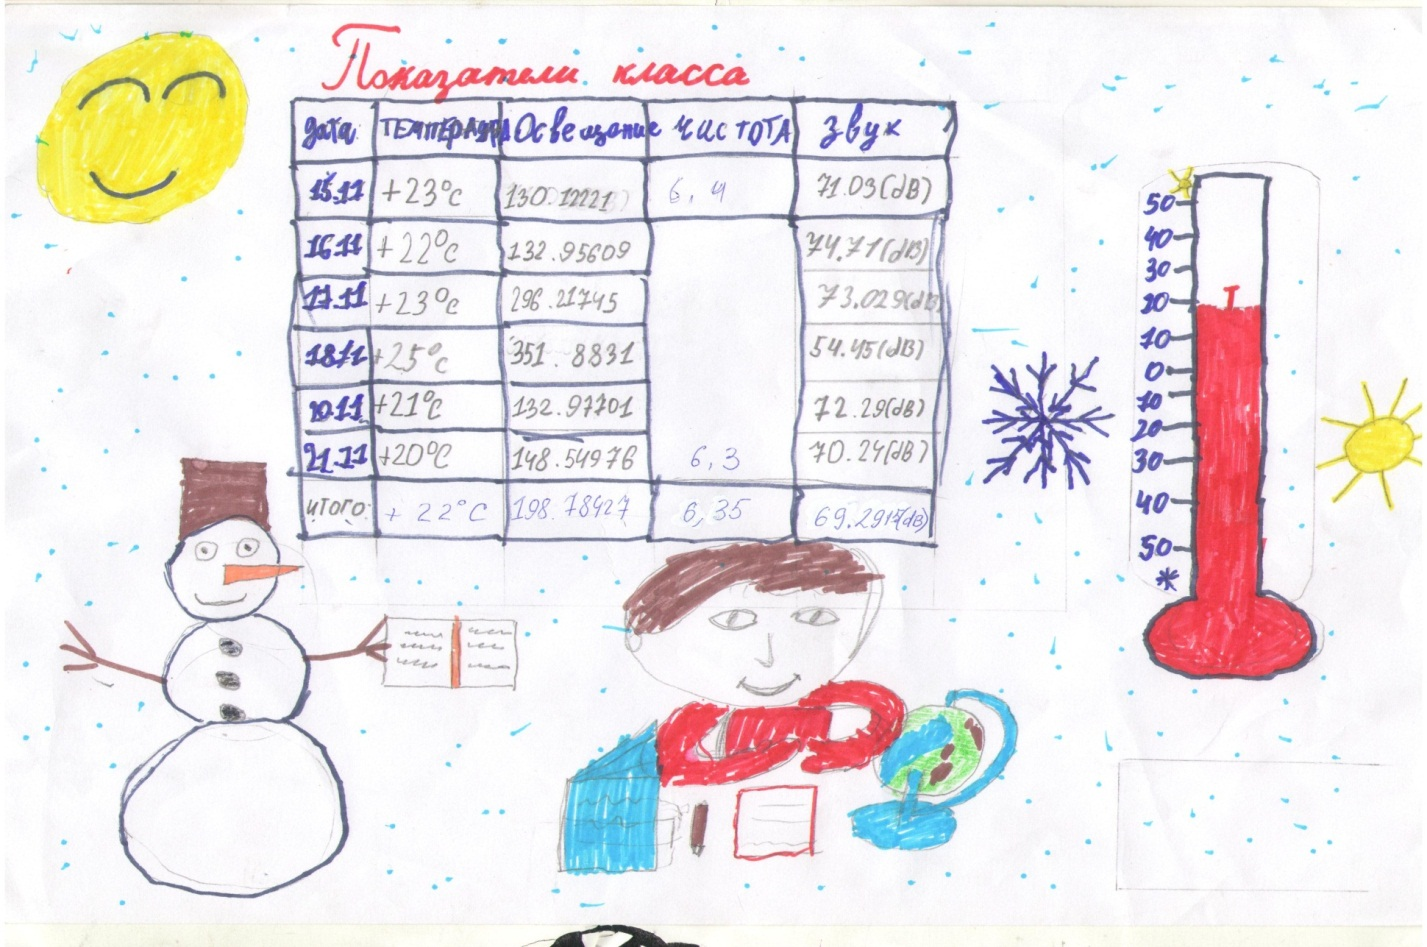 Показатели класса
Дата Температура Освещение чистота Звук
15.11 +23°C 130.12221 6,4 71.03(dB)
16.11 +22°C 132.95609 74.71(dB)
17.11 +23°C 296.21745 73.029(dB)
18.11 +25°C 351.8831 54.45(dB)
20.11 +21°C 132.97701 72.29(dB)
21.11 +20°C 148.54976 6,3 70.24(dB)
итого: +22°C 198.78427 6,35 69.291(dB)
50
40
30
20
10
0
10
20
30
40
50